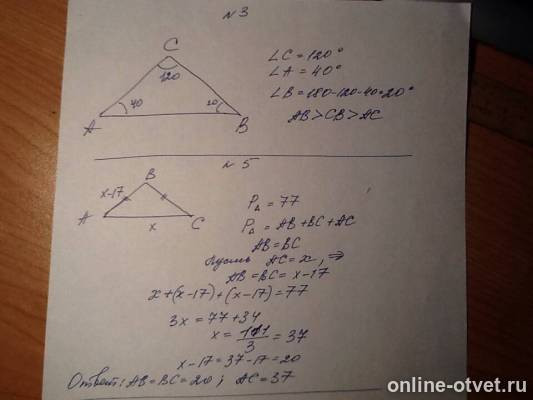 № 3
C
120
40
20
A
B
∠C = 120°
∠A = 40°
∠B = 180-120-40=20°
AB > CB > AC
№ 5
B
x-17
A
x
C
P△ = 77
P△ = AB + BC + AC
AB = BC
Пусть AC = x, ⇒
AB = BC = x - 17
x + (x - 17) + (x - 17) = 77
3x = 77 + 34
x = 111/3 = 37
x - 17 = 37 - 17 = 20
Ответ: AB = BC = 20 ; AC = 37
online-otvet.ru